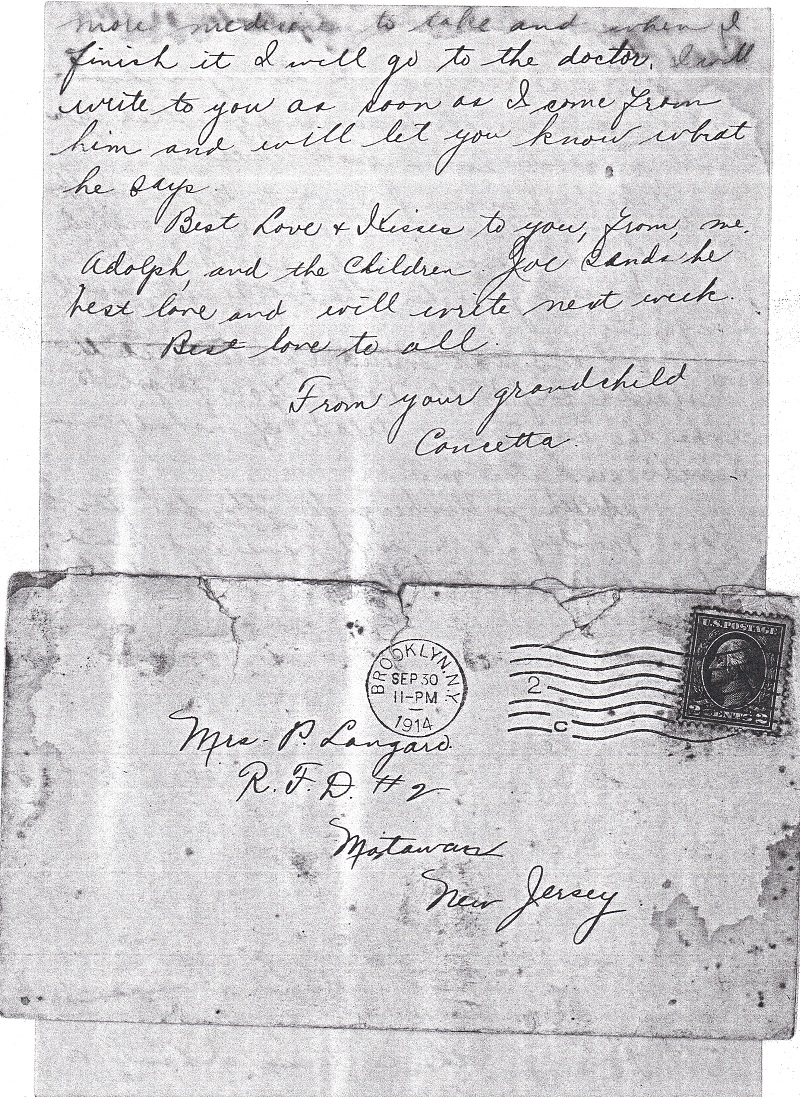 more medicine to take and when I
finish it I will go to the doctor. I will
write to you as soon as I come from
him and will let you know what
he says.
Best Love + Kisses to you, from, me,
Adolph, and the Children. Joe sands he
best love and will write next week.
Best love to all.
From your grandchild
Concetta.
U.S. POSTAGE
BROOKLYN, N.Y.
SEP 30
11-PM
1914
2
C
2 CENTS 2
Mrs. P. Longard.
R. F. D. # 2
Matawan
New Jersey